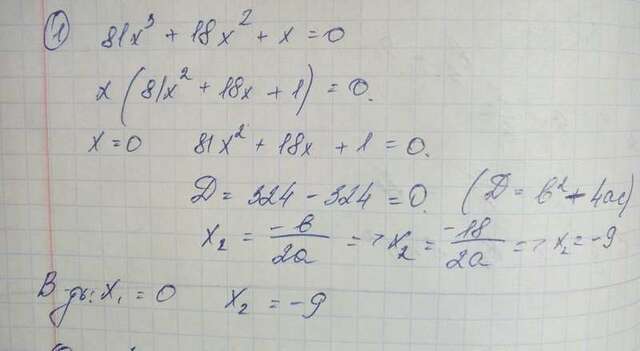 ① 81x³ + 18x² + x = 0
x (81x² + 18x + 1) = 0.
x = 0   81x² + 18x + 1 = 0.
D = 324 - 324 = 0. (D = b² - 4ac)
x₂ = -b/2a => x₂ = -18/2a => x₂ = -9
x₁ = 0   x₂ = -9